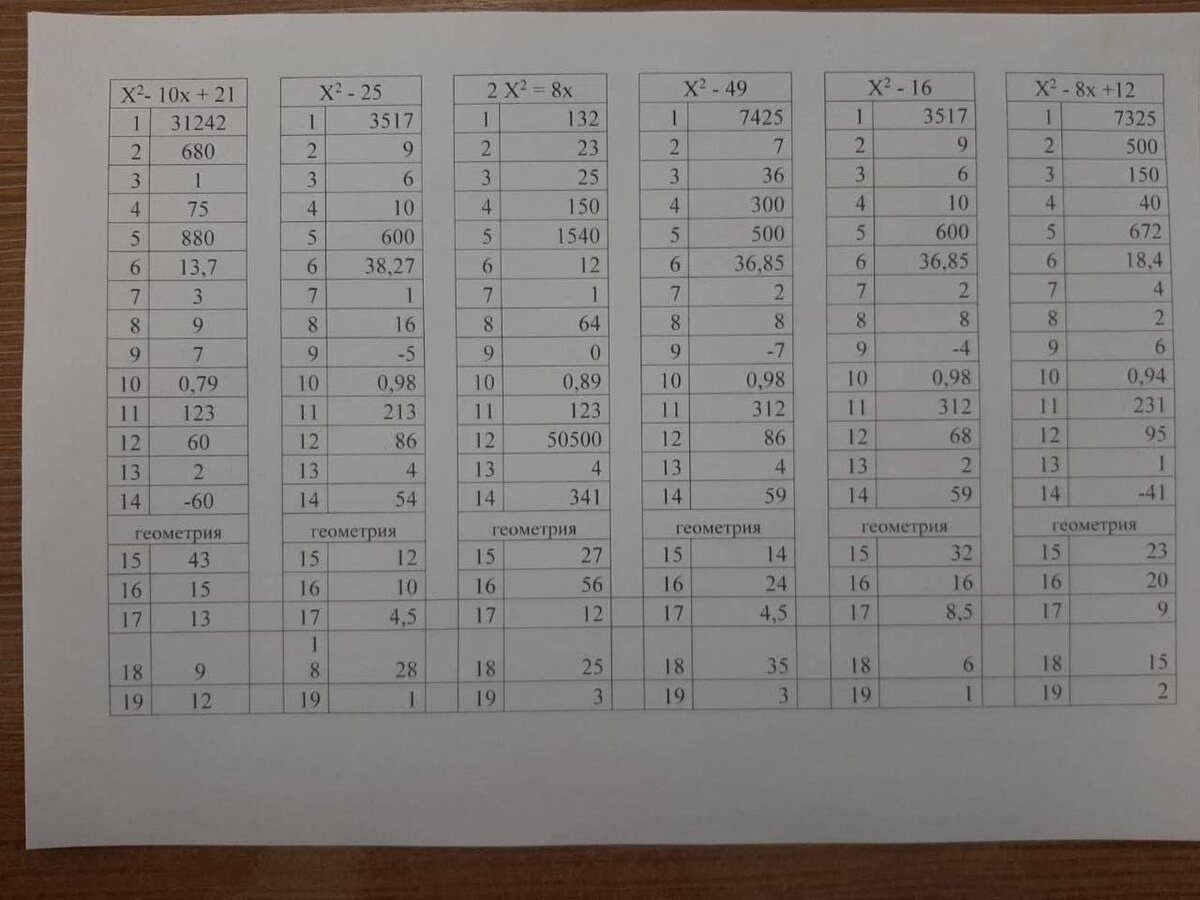 X²- 10x + 21 X² - 25 2 X² = 8x X² - 49 X² - 16 X² - 8x +12
1 31242 1 3517 1 132 1 7425 1 3517 1 7325
2 680 2 9 2 23 2 7 2 9 2 500
3 1 3 6 3 25 3 36 3 6 3 150
4 75 4 10 4 150 4 300 4 10 4 40
5 880 5 600 5 1540 5 500 5 600 5 672
6 13,7 6 38,27 6 12 6 36,85 6 36,85 6 18,4
7 3 7 1 7 1 7 2 7 2 7 4
8 9 8 16 8 64 8 8 8 8 8 2
9 7 9 -5 9 0 9 -7 9 -4 9 6
10 0,79 10 0,98 10 0,89 10 0,98 10 0,98 10 0,94
11 123 11 213 11 123 11 312 11 312 11 231
12 60 12 86 12 50500 12 86 12 68 12 95
13 2 13 4 13 4 13 4 13 2 13 1
14 -60 14 54 14 341 14 59 14 59 14 -41
геометрия геометрия геометрия геометрия геометрия геометрия
15 43 15 12 15 27 15 14 15 32 15 23
16 15 16 10 16 56 16 24 16 16 16 20
17 13 17 4,5 17 12 17 4,5 17 8,5 17 9
1
18 9 8 28 18 25 18 35 18 6 18 15
19 12 19 1 19 3 19 3 19 1 19 2